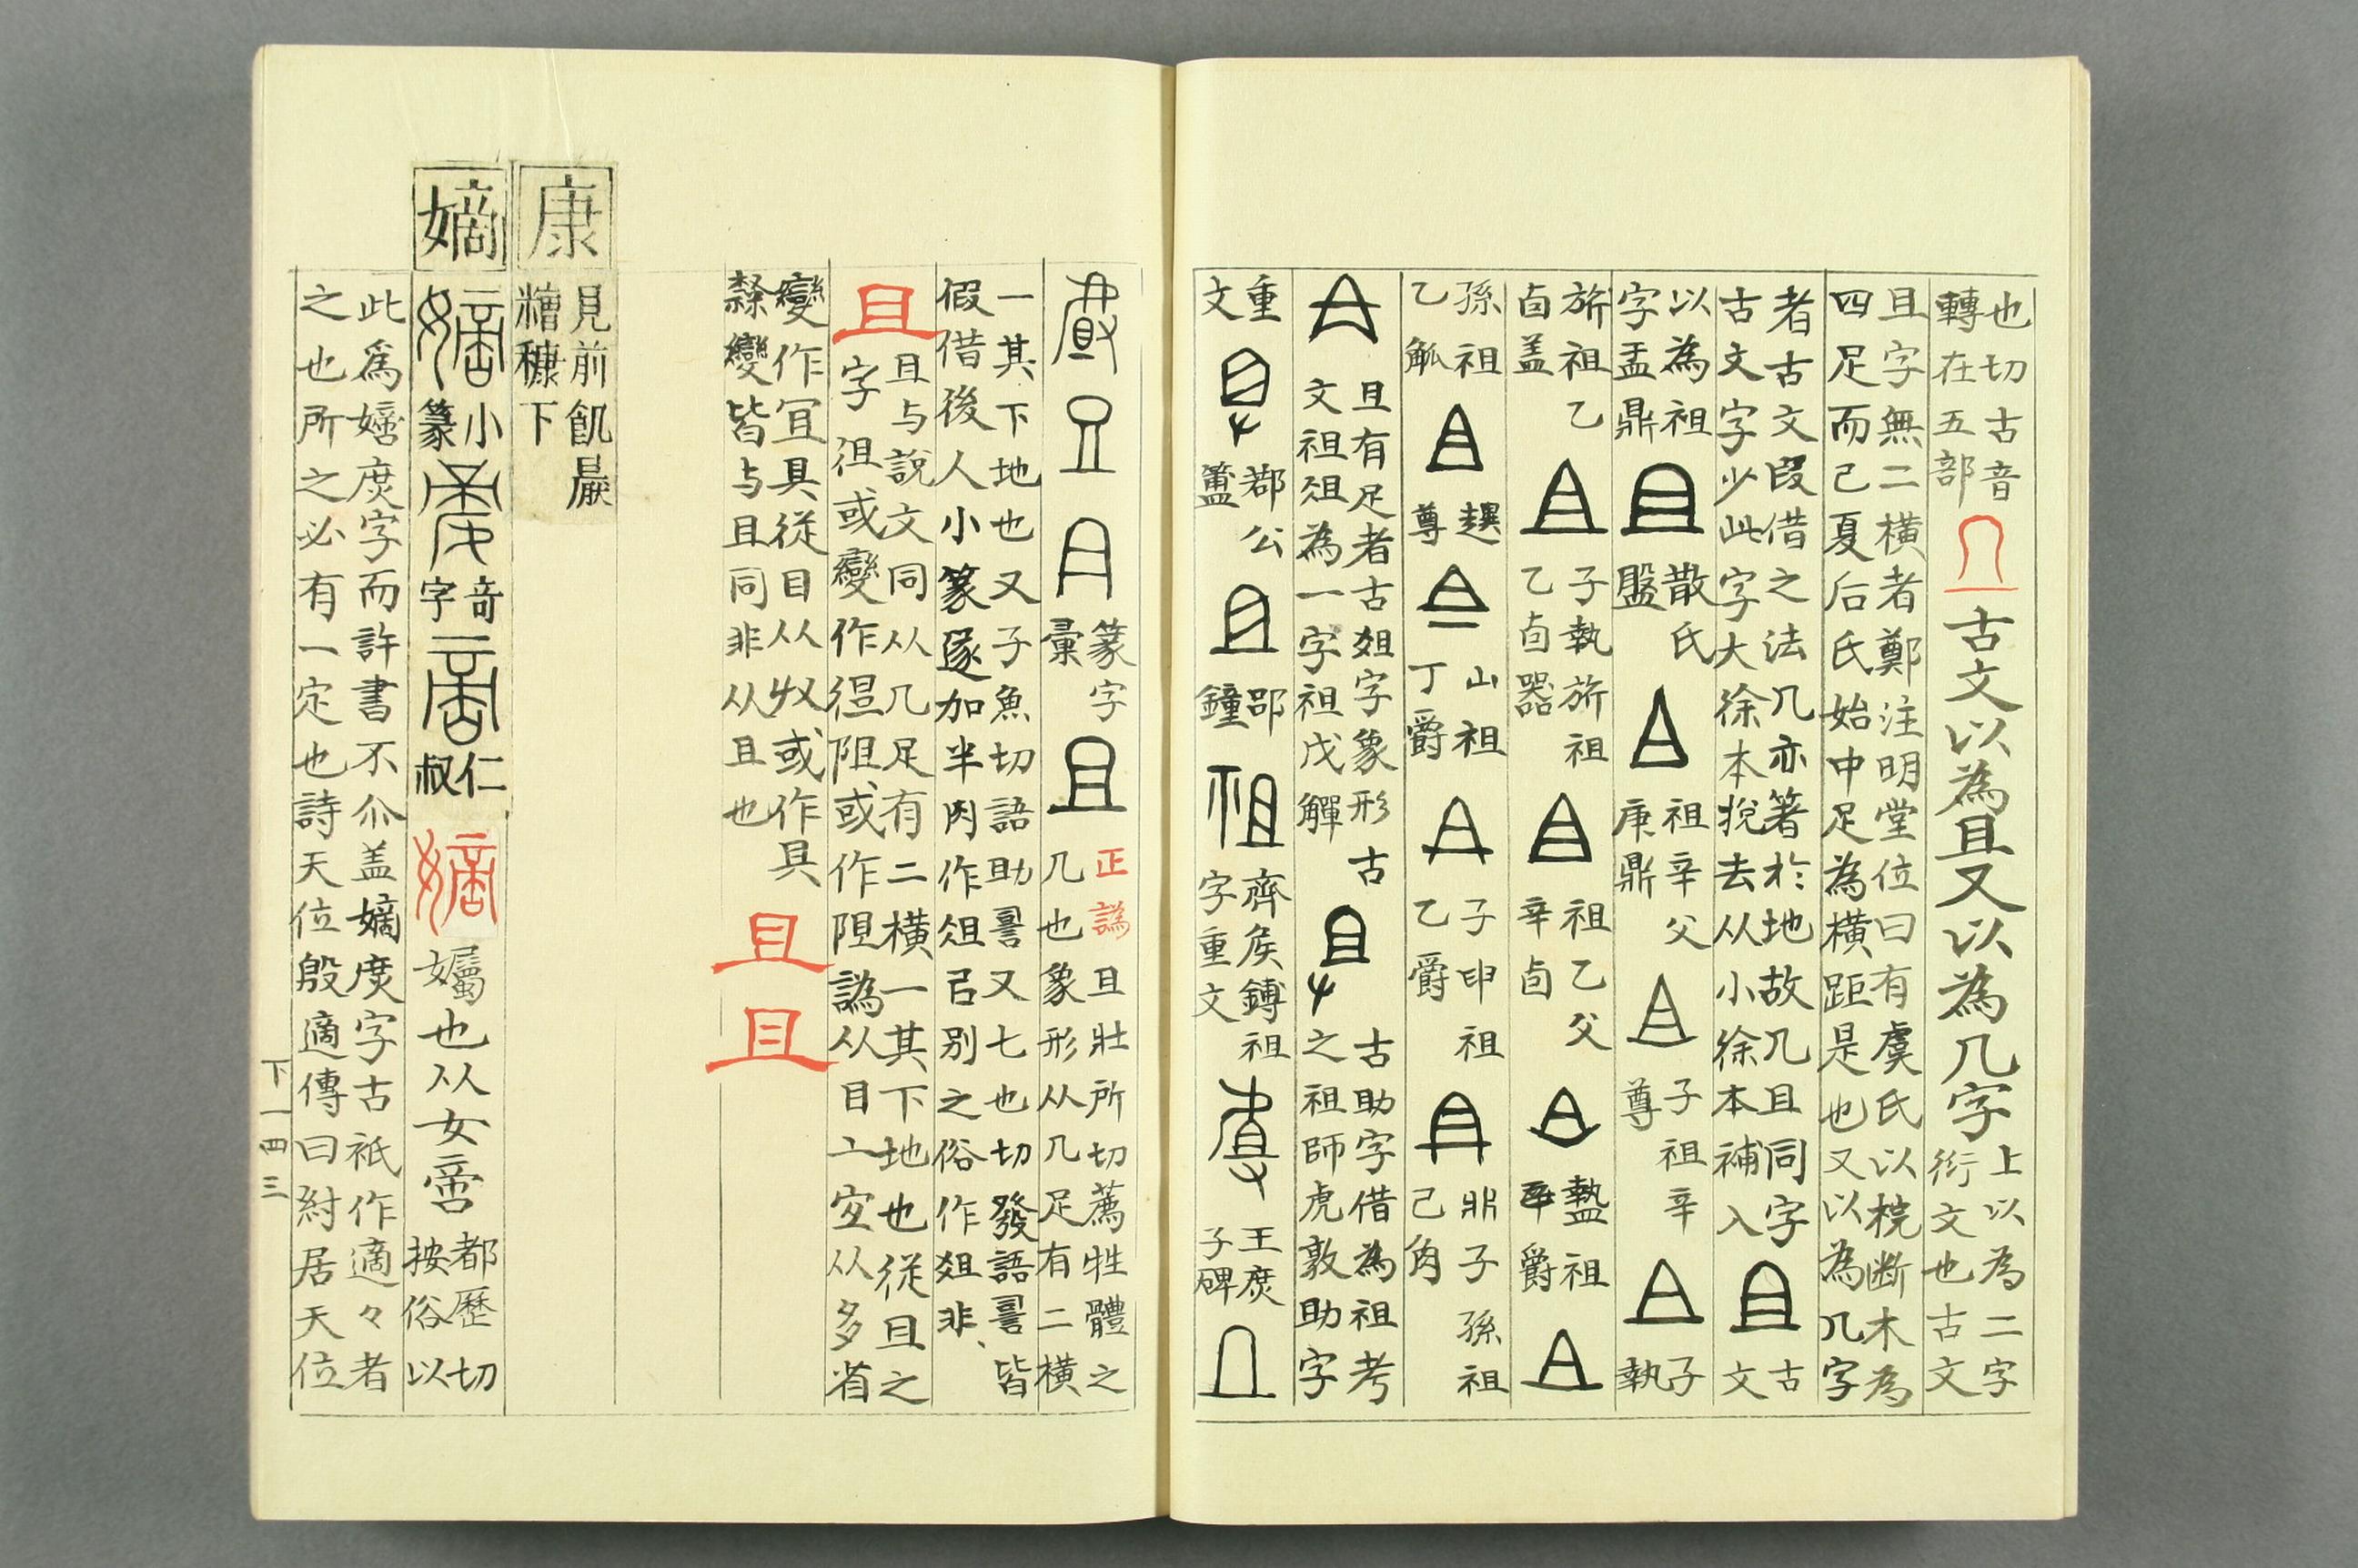 也切古音
轉在五部
古文以為且又以為几字
上以為二字
衍文也古文
且字無二橫者鄭注明堂位曰有虞氏以梡斷木為
四足而已夏后氏始中足為橫距是也又以為几字
者古文叚借之法几亦箸於地故几且同字
古文字少此字大徐本挩去从小徐本補入
古
文
以為祖
字盂鼎
散氏
盤
祖辛父
庚鼎
子祖辛
尊
子
執
旂祖乙
卣盖
子執旂祖
乙卣器
祖乙父
辛卣
祖
爵
孫祖
乙觚
尊
山祖
丁爵
子申祖
乙爵
子孫祖
己角
且有足者古俎字象形古
文祖俎為一字祖戊觶
古助字借為祖考
之祖師虎敦助字
重
文
鄀公
簠
郘
鐘
齊矦鎛祖
字重文
王庶
子碑
篆字
彙
正譌
且壯所切薦牲體之
几也象形从几足有二橫
一其下地也又子魚切語助䛐又七也切發語䛐皆
假借後人小篆遂加半肉作俎㠯別之俗作爼非
且
且与說文同从几足有二橫一其下地也從且之
字徂或變作𢓈阻或作䧹譌从目㠪宜从多省
變作冝具從目从廾或作具
隸變皆与且同非从且也
且
且
康
見前飢嚴
糟穅下
嫡
小
篆
音
字
仁
叔
孎也从女啻
都歷切
按俗以
此爲嫡庶字而許書不尒盖嫡庶字古衹作適々者
之也所之必有一定也詩天位殷適傳曰紂居天位
下一四三